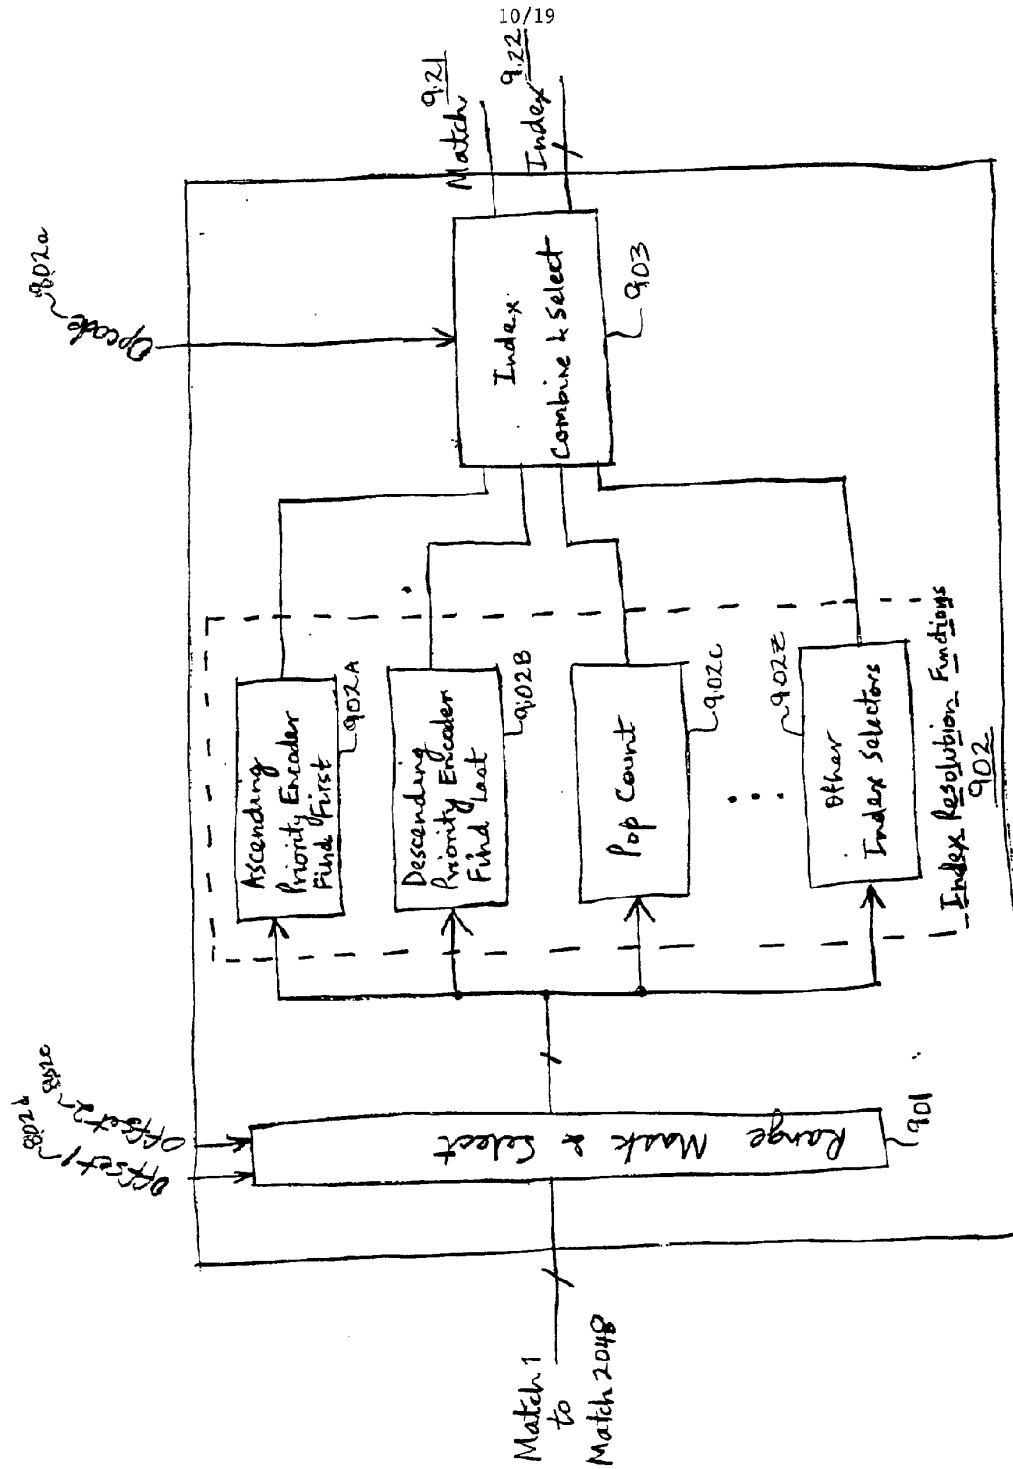 10/19
Match 1
to
Match 2048
Offset1 802d
Offset2 802e
Range Mask & Select
901
Ascending
Priority Encoder
Find First
902A
Descending
Priority Encoder
Find Last
902B
Pop Count
902C
...
902Z
Other
Index Selectors
Index Resolution Functions
902
Opcode 802a
Index
Combine & Select
903
Match 921
Index 922